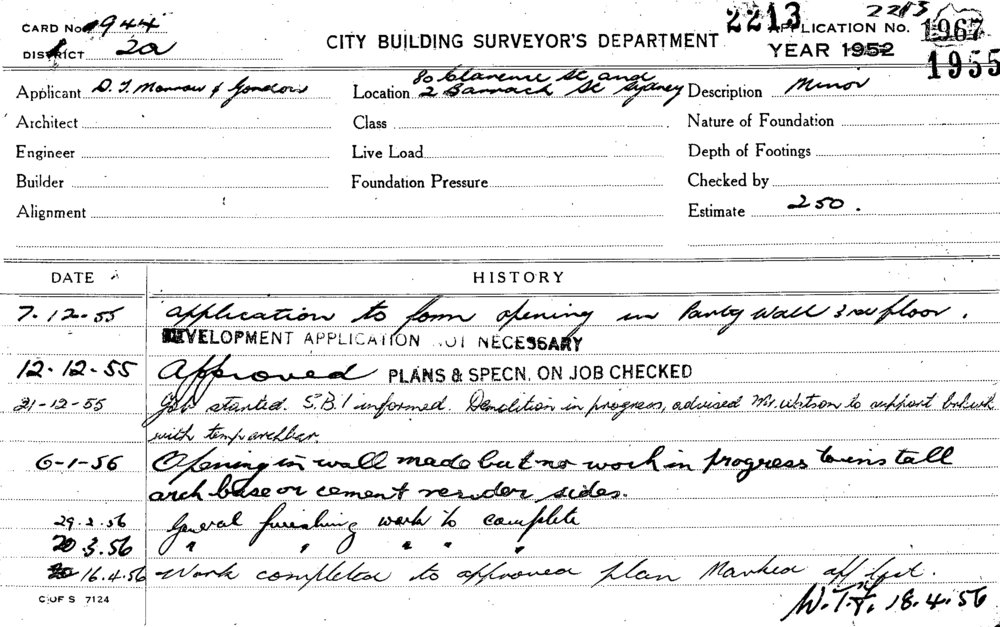 2213
2213
CARD No. 1944
APPLICATION No. 1967
DISTRICT 2a
CITY BUILDING SURVEYOR'S DEPARTMENT
YEAR 1952
1955
Applicant D. T. Morrow & Gordon
Location 80 Clarence St and
2 Barrack St Sydney
Description Minor
Architect
Class
Nature of Foundation
Engineer
Live Load
Depth of Footings
Builder
Foundation Pressure
Checked by
Alignment
Estimate 250.
DATE
HISTORY
7.12.55 Application to form opening in Party Wall 3rd floor.
DEVELOPMENT APPLICATION NOT NECESSARY
12-12-55 Approved PLANS & SPECN. ON JOB CHECKED
21-12-55 Job started. S.B.I informed. Demolition in progress, advised Mr. Watson to support brkwk
with temp archbar
6-1-56 Opening in wall made but no work in progress to install
arch base or cement render sides.
29.2.56 General finishing work to complete
20.3.56 " " " " "
16.4.56 Work completed to approved plan Marked off list.
W.T.F. 18.4.56
C OF S 7124